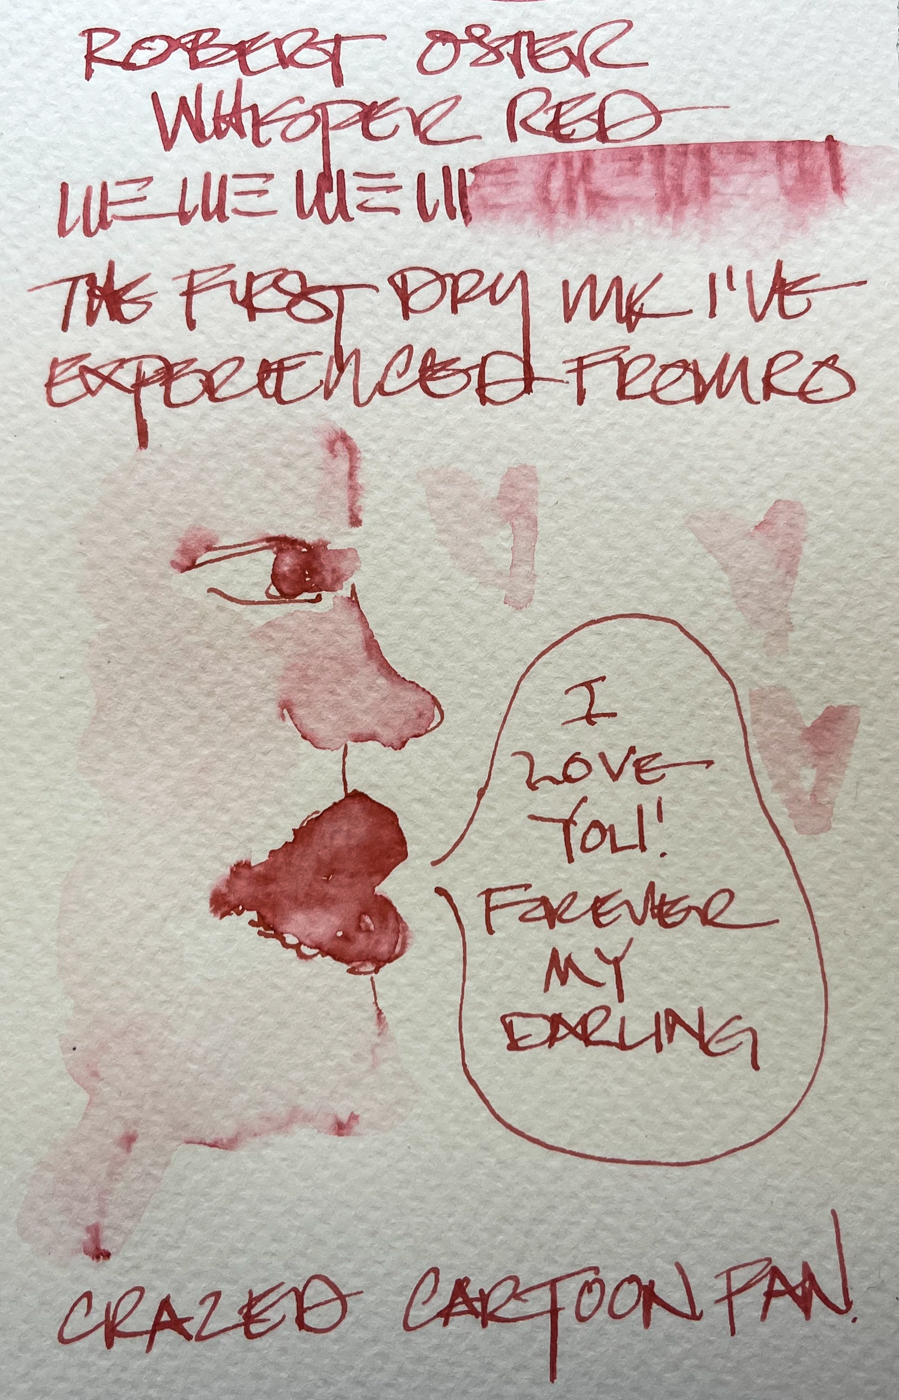 ROBERT OSTER
WHISPER RED
THE FIRST DRY INK I'VE
EXPERIENCED FROM RO
I
LOVE
YOU!
FOREVER
MY
DARLING
CRAZED CARTOON FAN.